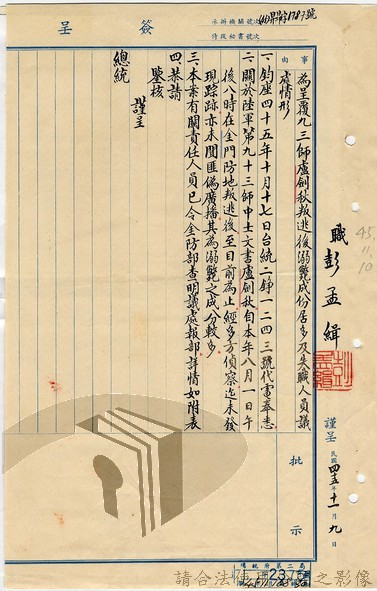 簽呈
承辦機關號次
侍從秘書號次
事由
為呈覆九三師盧劍秋叛逃後溺斃成份居多及失職人員議處情形
一、鈞座四十五年十月十七日台統二錚一二四三號代電奉悉
二、關於陸軍第九十三師中士文書盧劍秋自本年八月一日午
後八時在金門防地叛逃後至目前為止經多方偵察迄未發
現踪跡亦未聞匪偽廣播其為溺斃之成分較多
三、本案有關責任人員已令金防部查明議處報部詳情如附表
四、恭請
鑒核
謹呈
總統
職彭孟緝
謹呈
民國四五年十一月九日
45.
11.
10
批示
總統府第二局
請合法使用之影像